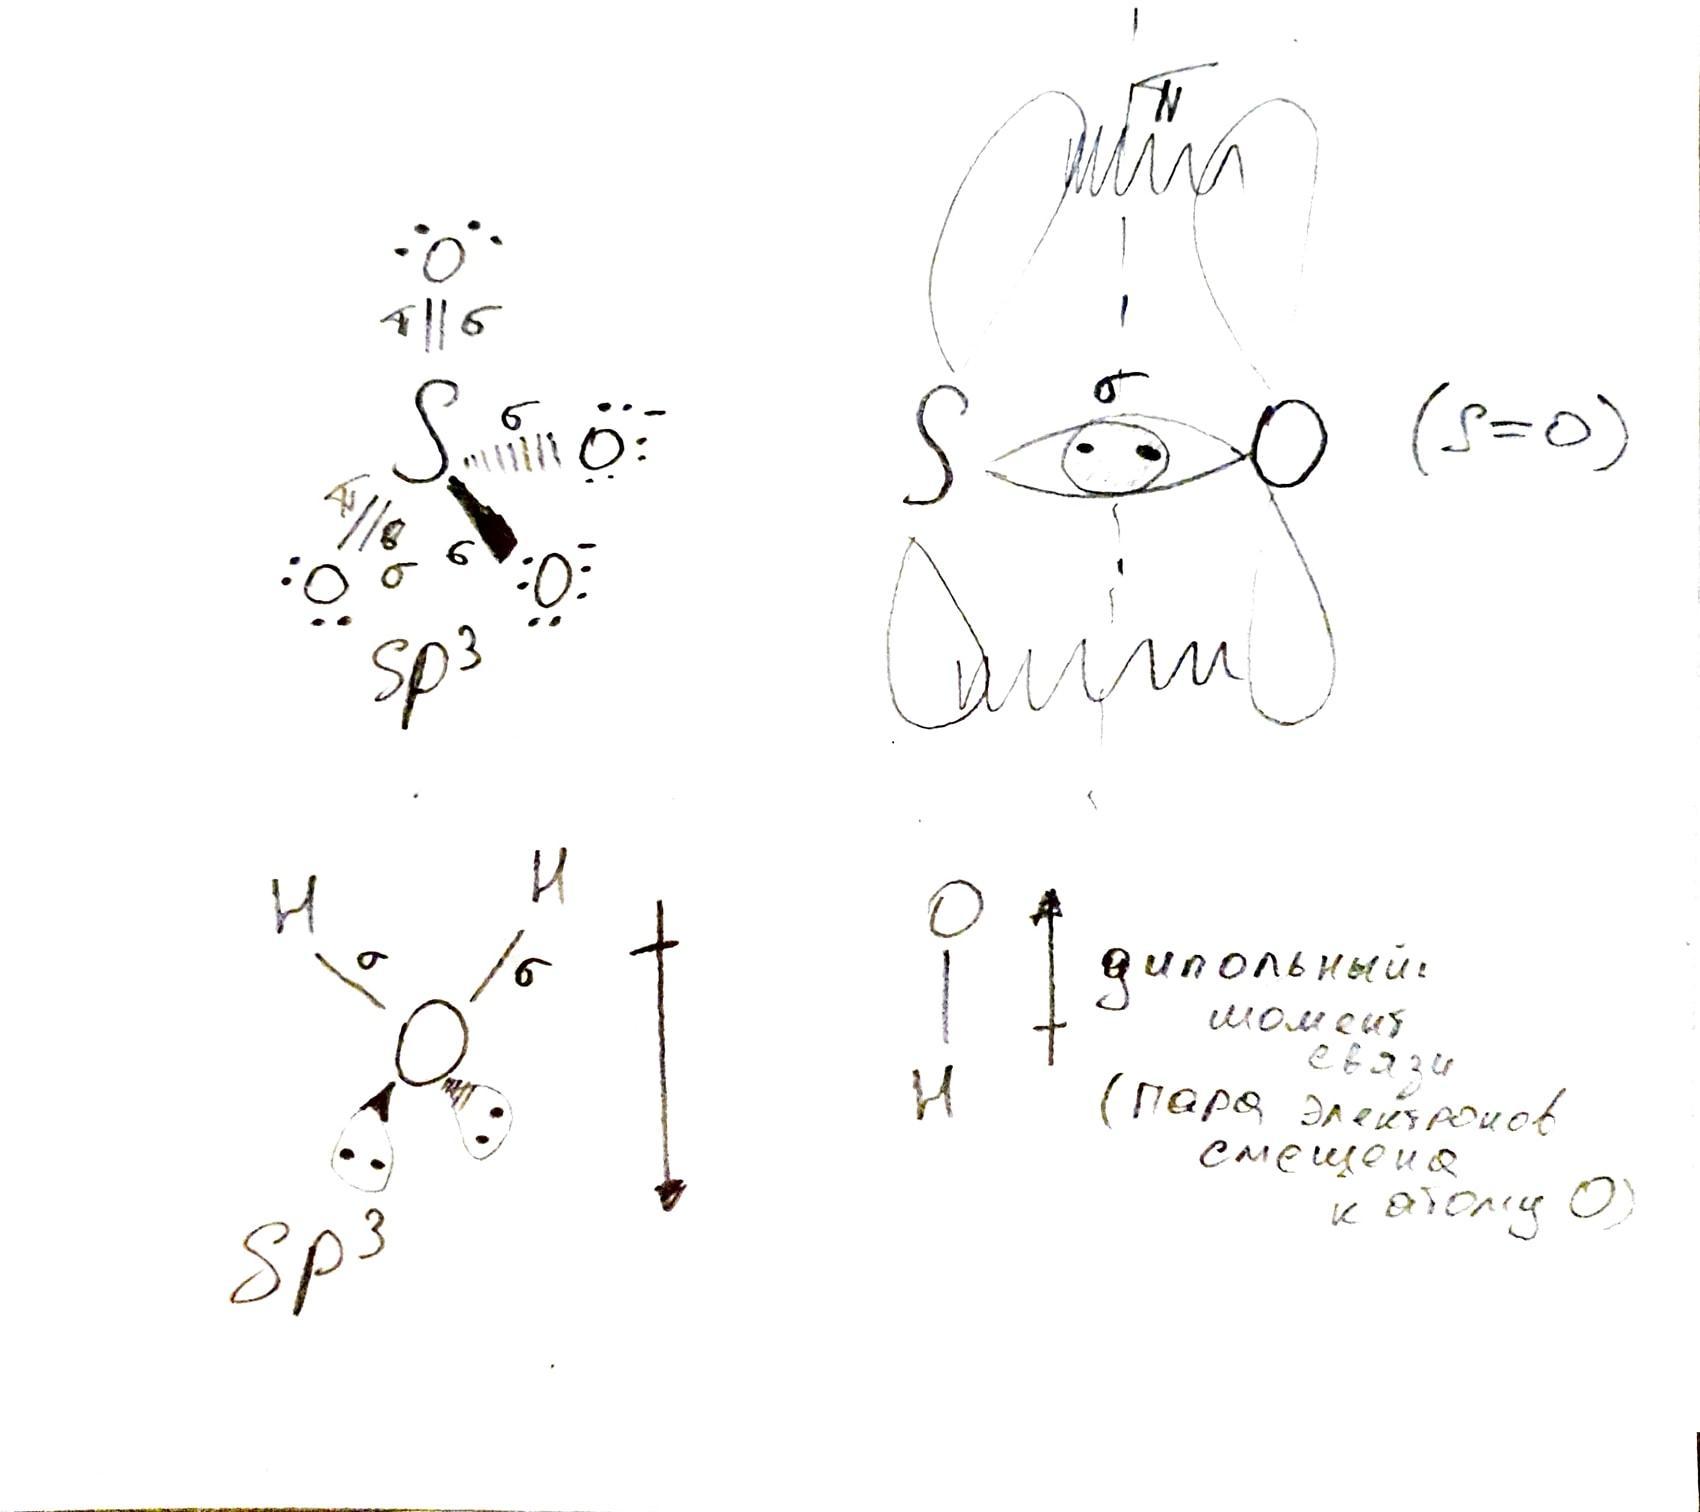 π
O
π σ
S σ O⁻
σ
S O (S=O)
π σ
O σ σ O⁻
sp³
H H
σ σ
O
sp³
O
H
дипольный
момент
связи
(пара электронов
смещена
к атому O)